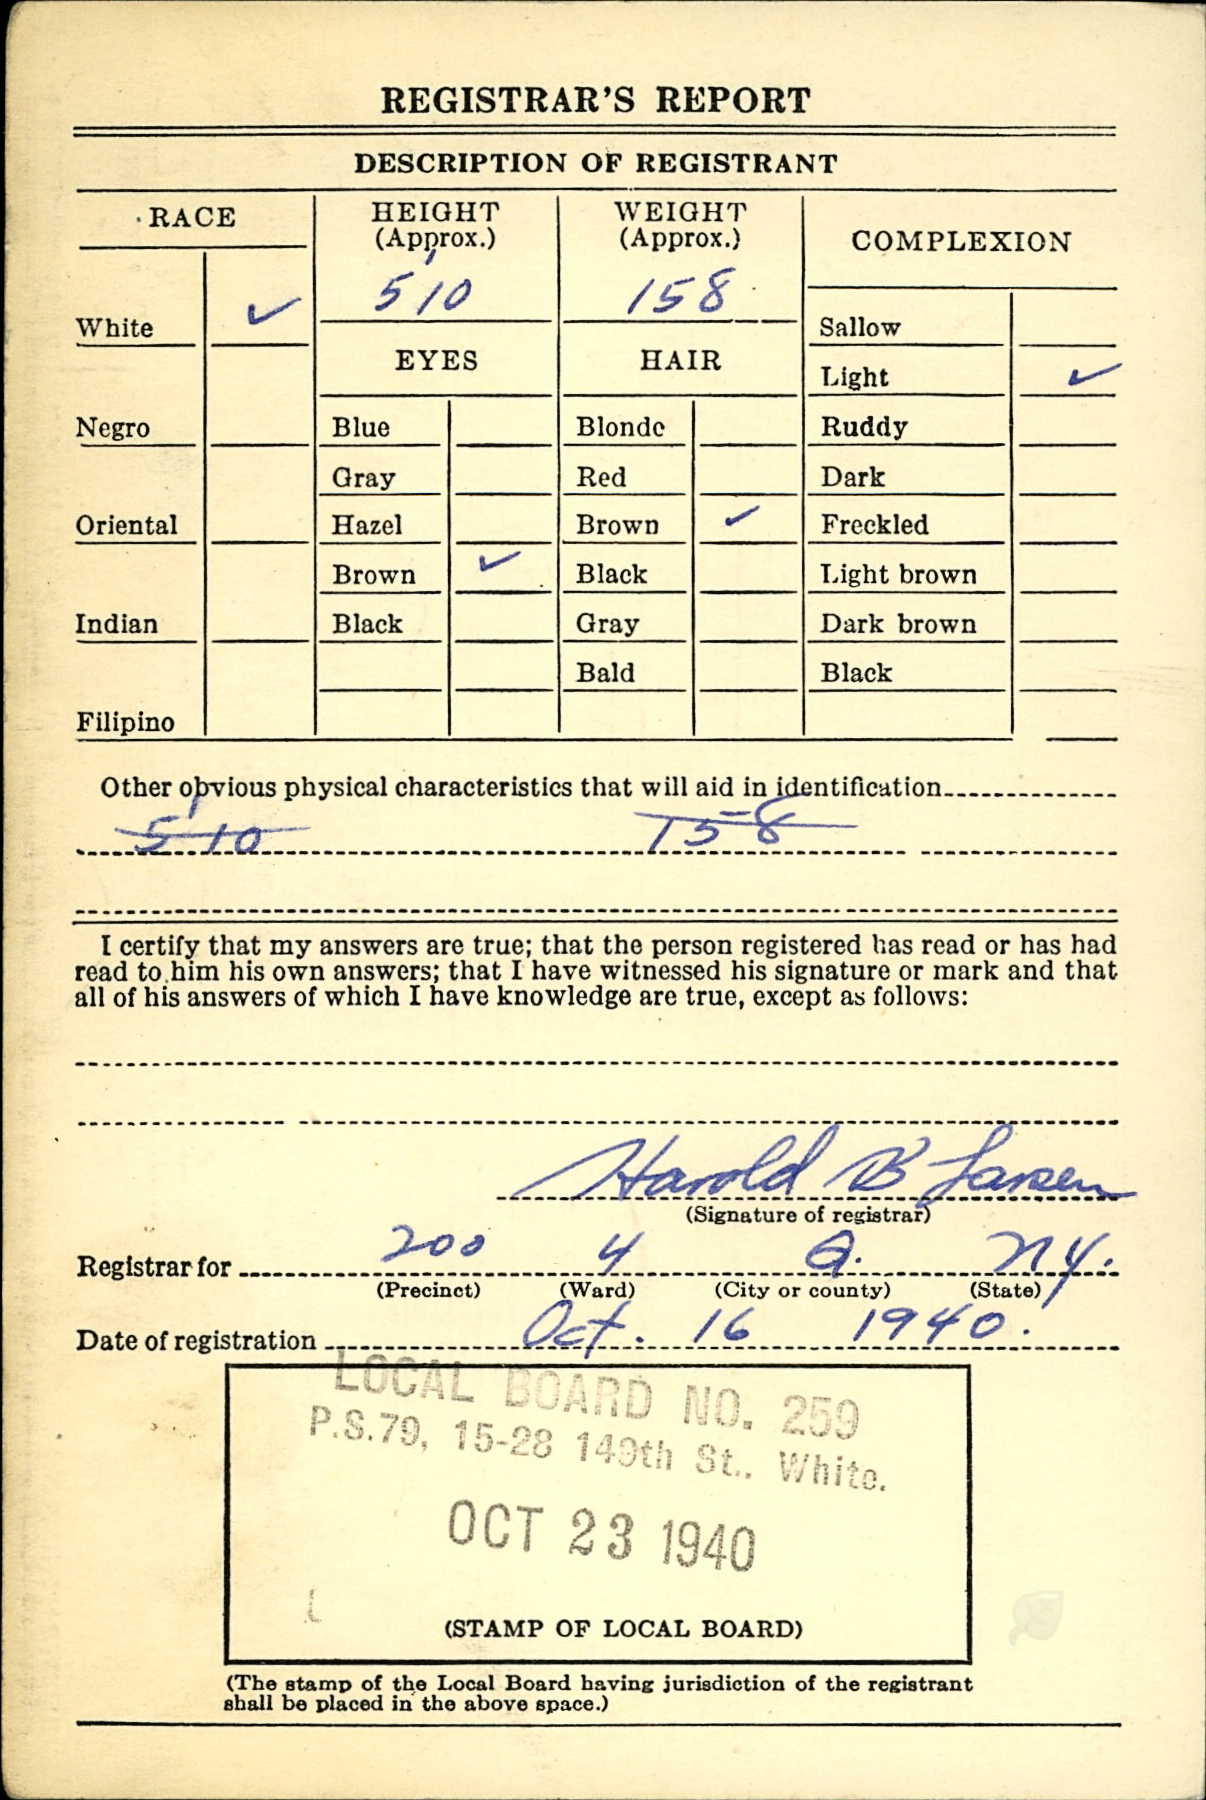 REGISTRAR'S REPORT
DESCRIPTION OF REGISTRANT
RACE
HEIGHT
(Approx.)
WEIGHT
(Approx.)
COMPLEXION
5'10
158
White ✓
Sallow
EYES
HAIR
Light ✓
Negro
Blue
Blonde
Ruddy
Gray
Red
Dark
Oriental
Hazel
Brown ✓
Freckled
Brown ✓
Black
Light brown
Indian
Black
Gray
Dark brown
Bald
Black
Filipino
Other obvious physical characteristics that will aid in identification
5'10 158
I certify that my answers are true; that the person registered has read or has had
read to him his own answers; that I have witnessed his signature or mark and that
all of his answers of which I have knowledge are true, except as follows:
Harold B Larsen
(Signature of registrar)
Registrar for 200 4 Q. N.Y.
(Precinct) (Ward) (City or county) (State)
Date of registration Oct. 16 1940.
LOCAL BOARD NO. 259
P.S.79, 15-28 149th St., White.
OCT 23 1940
(STAMP OF LOCAL BOARD)
(The stamp of the Local Board having jurisdiction of the registrant
shall be placed in the above space.)